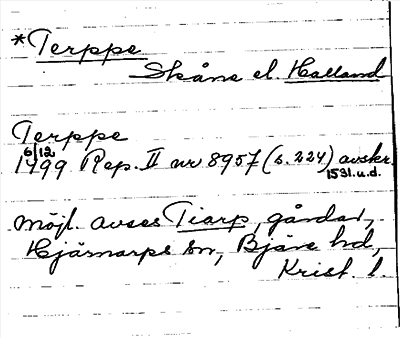 *Terppe
Skåne el. Halland
Terppe
6/12
1499 Rep. II nr 8957 (s. 224) avskr.
1531. u.d.
möjl. avses Tiarp, gårdar,
Hjärnarps sn, Bjäre hd,
Krist. l.